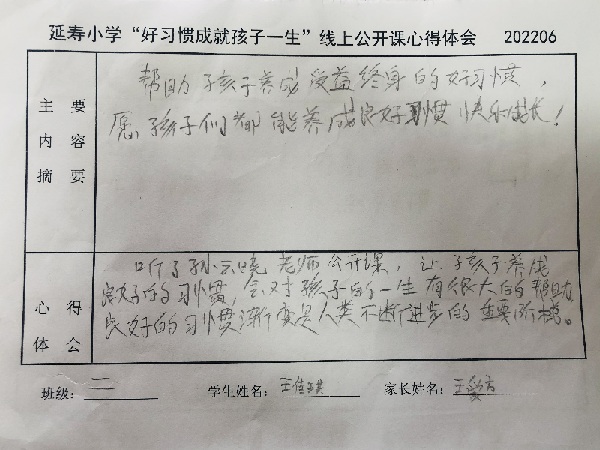 延寿小学“好习惯成就孩子一生”线上公开课心得体会 202206
主要
内容
摘要
帮助孩子养成受益终身的好习惯,
愿孩子们都能养成良好习惯快乐成长!
心得
体会
听了孙云晓老师公开课,让孩子养成
良好的习惯,会对孩子的一生有很大的帮助
良好的习惯渐变是人类不断进步的重要阶梯。
班级: 二二 学生姓名: 王佳 家长姓名: 王